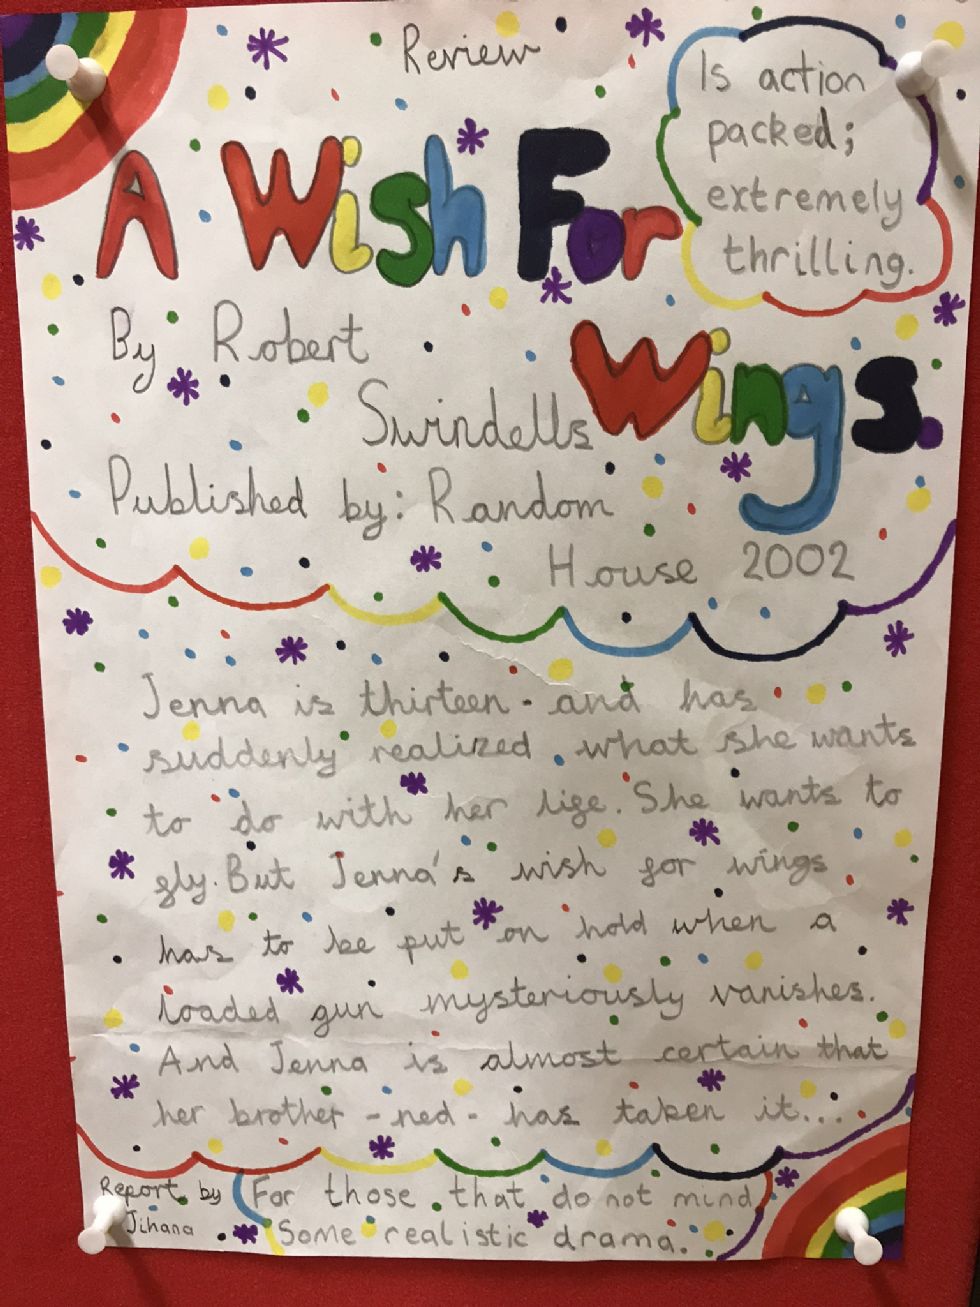 Review
Is action
packed;
extremely
thrilling.
A Wish For
Wings.
By Robert
Swindells
Published by: Random
House 2002
Jenna is thirteen - and has
suddenly realized what she wants
to do with her life. She wants to
fly. But Jenna's wish for wings
has to be put on hold when a
loaded gun mysteriously vanishes.
And Jenna is almost certain that
her brother - ned - has taken it...
Report by
Jihana
For those that do not mind
Some realistic drama.